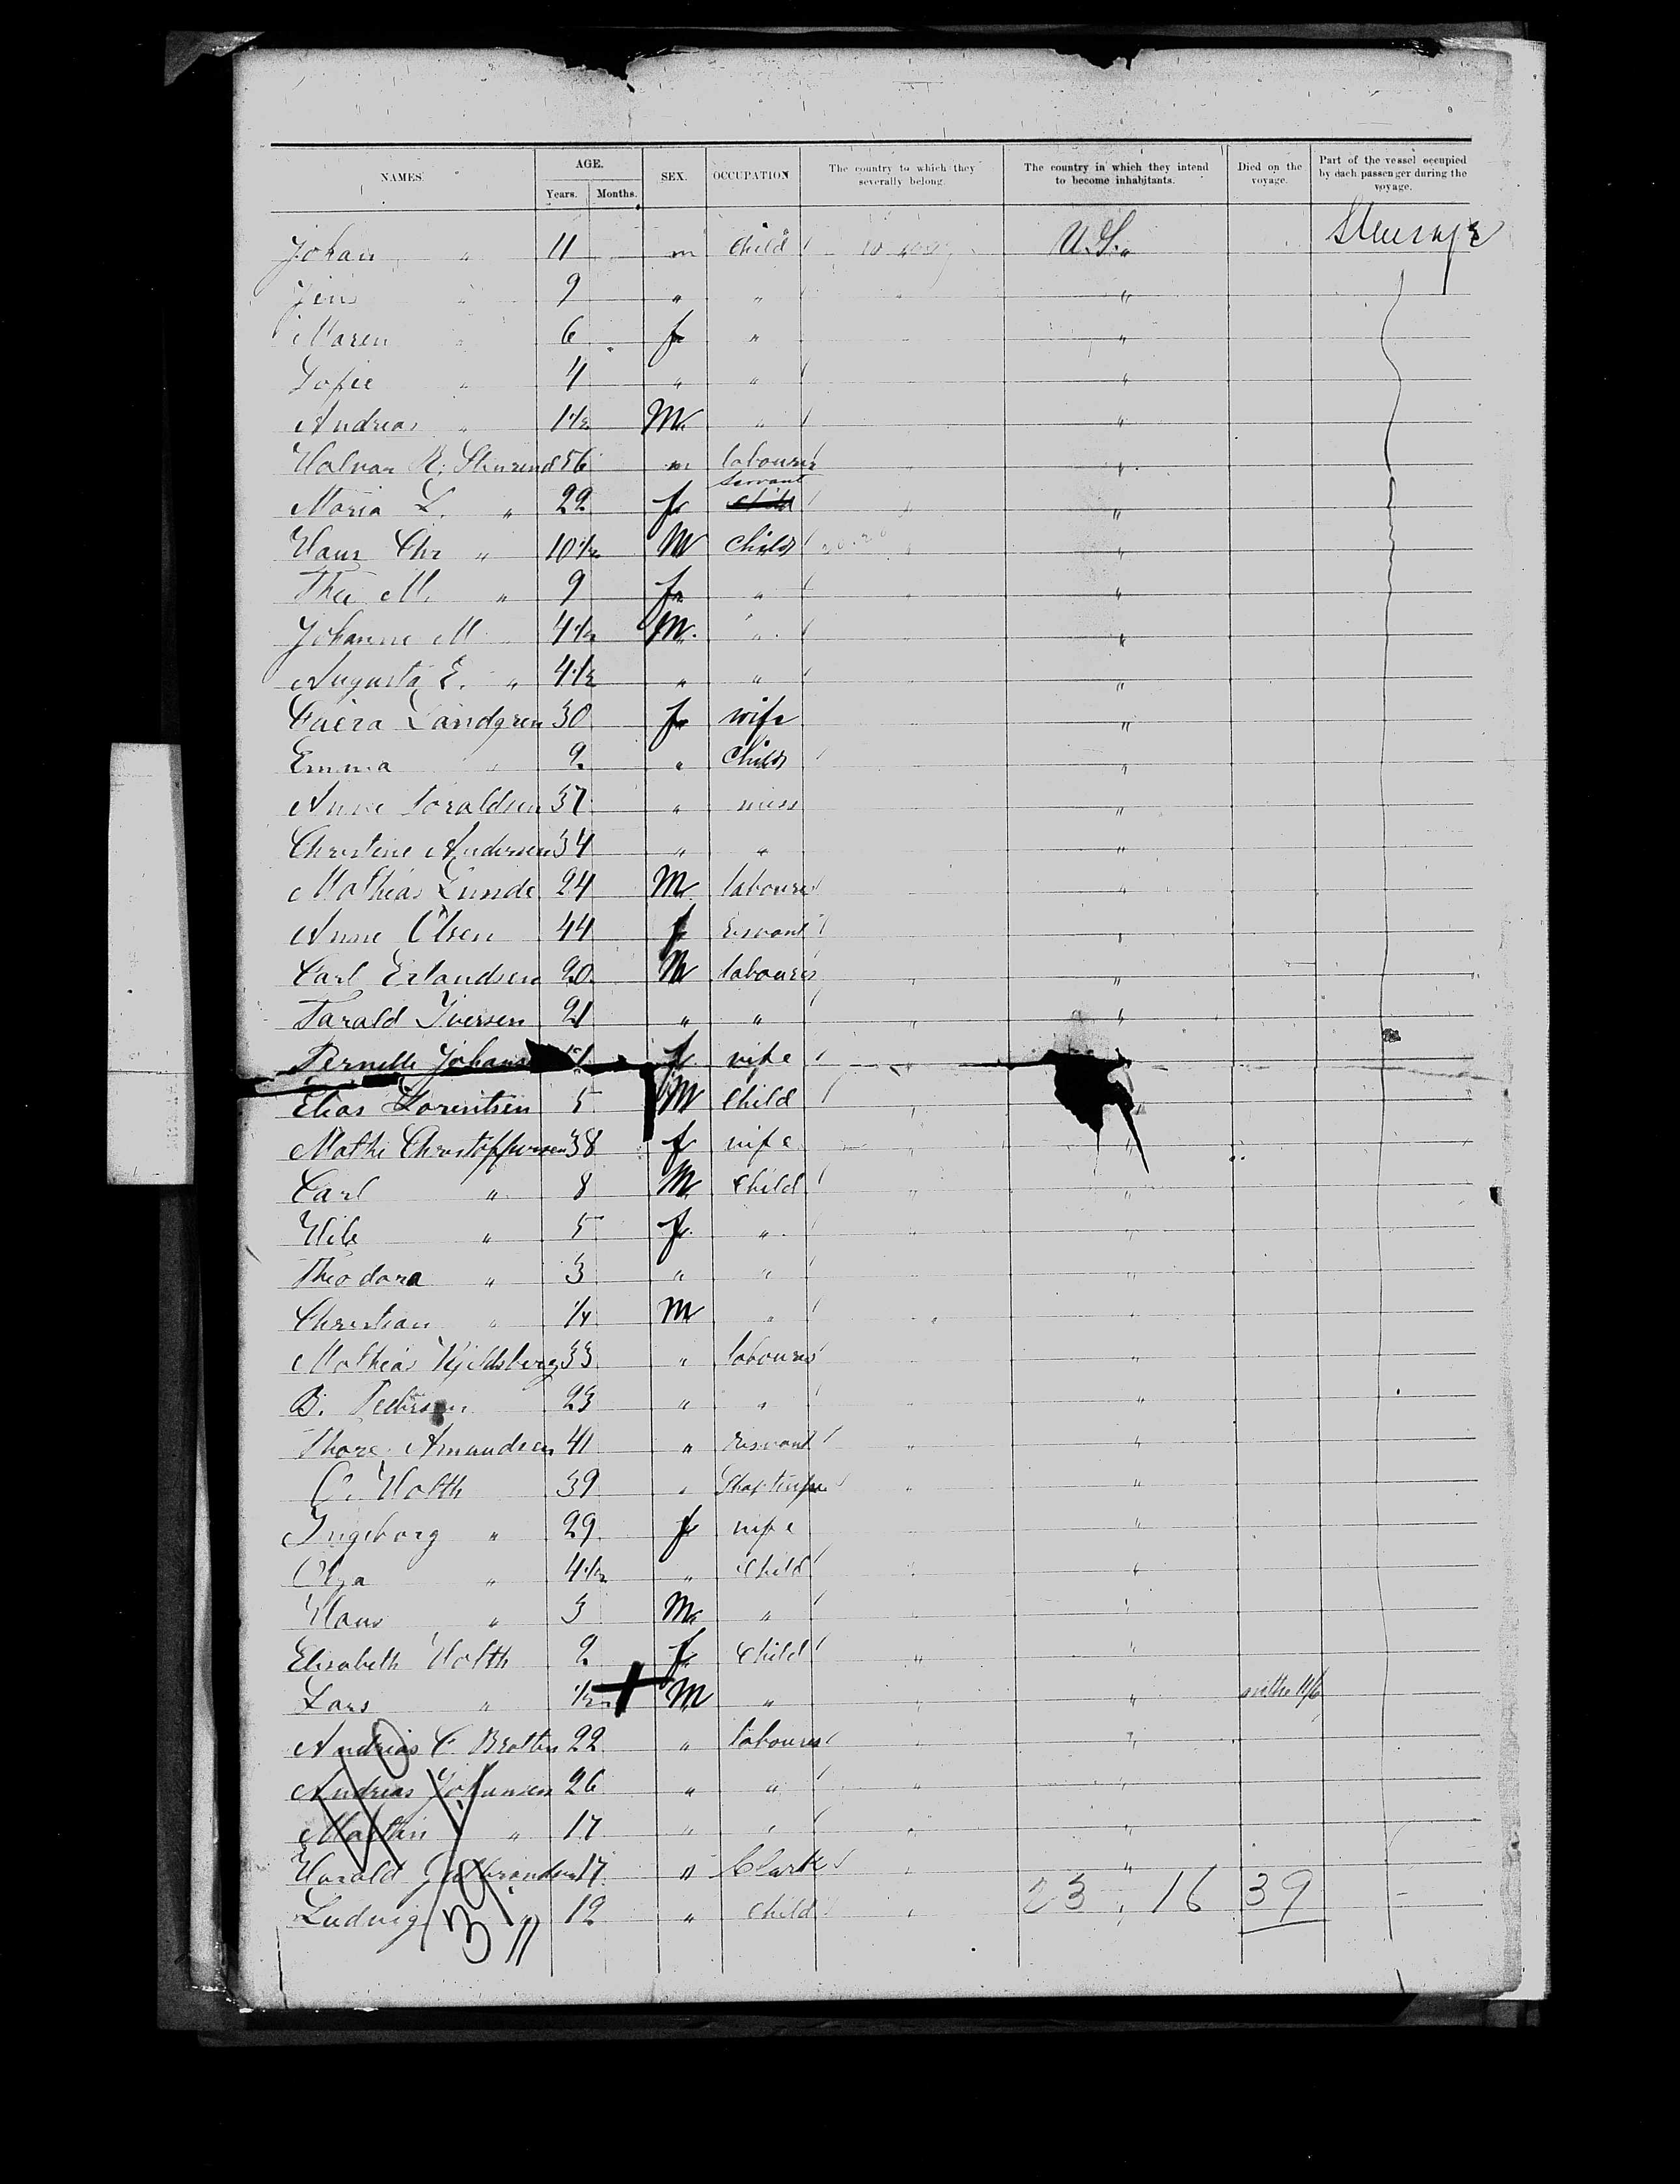 NAMES AGE. Years. Months. SEX. OCCUPATION The country to which they severally belong. The country in which they intend to become inhabitants. Died on the voyage. Part of the vessel occupied by each passenger during the voyage.
Johan " 11 m Child U.S. Steerage
Jens " 9 " " "
Maren " 6 f " "
Sofie " 4 " " "
Andreas " 1 1/2 M " "
Halvar R. 56 m labourer "
Maria L. " 22 f servant "
Hans Chr " 10 1/2 M Child "
Thea M. " 9 f " "
Johanne M " 4 1/2 M. " "
Augusta E. " 4 1/2 " " "
Landgren 30 f wife "
Emma " 9 " Child "
Anne Toraldsen 37 " miss "
Christine Andersen 34 " " "
Mathias Lunde 24 M labourer "
Anne Olsen 44 f servant "
Carl Erlandsen 20 M labourer "
Tarald Iversen 21 " " "
Pernelle f wife
Elias Lorentsen 5 M Child
Mathe Christoffersen 38 f wife "
Carl " 8 M Child "
5 f " "
Theodora " 3 " " "
Christian " 1/4 M " "
Mathias Kjeldsberg 33 " labourer "
B. Pedersen 23 " " "
Thore Amundsen 41 " servant "
C. Holth 39 "
Ingeborg " 29 f wife "
Olga " 4 1/2 " Child "
Hans " 3 M " "
Elisabeth Holth 2 f Child "
Lars " 1/2 M " " on the 11/6
Andreas C. Braaten 22 " labourer "
Andreas Johansen 26 " " "
Martin " 17 " " "
Harald Gulbrandsen 17 " Clark "
Ludwig " 12 " Child 23, 16 39
39